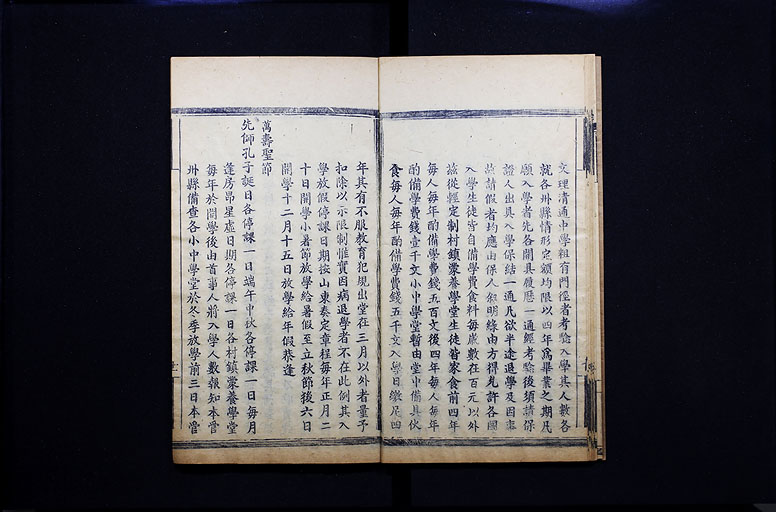 文理清通中學粗有門徑者考驗入學其人數各
就各州縣情形定額均限以四年為畢業之期凡
願入學者先各開具履歷一通經考驗後須請保
證人出具入學保結一通凡欲半途退學及因事
故請假者均應由保人敘明緣由方得允許各國
入學生徒皆自備學費食料每歲數在百元以外
茲從輕定制村鎮蒙養學堂生徒皆家食前四年
每人每年酌備學費錢五百文後四年每人每年
酌備學費錢壹千文小中學堂暫由堂中備具伙
食每人每年酌備學費錢五千文入學日繳足四
年其有不服教育犯規出堂在三月以外者量予
扣除以示限制惟實因病退學者不在此例其入
學放假停課日期按山東奏定章程每年正月二
十日開學小暑節放學給暑假至立秋節後六日
開學十二月十五日放學給年假恭逢
萬壽聖節
先師孔子誕日各停課一日端午中秋各停課一日每月
逢房昴星虛日期各停課一日各村鎮蒙養學堂
每年於開學後由首事人將入學人數報知本管
州縣備查各小中學堂於冬季放學前三日本管